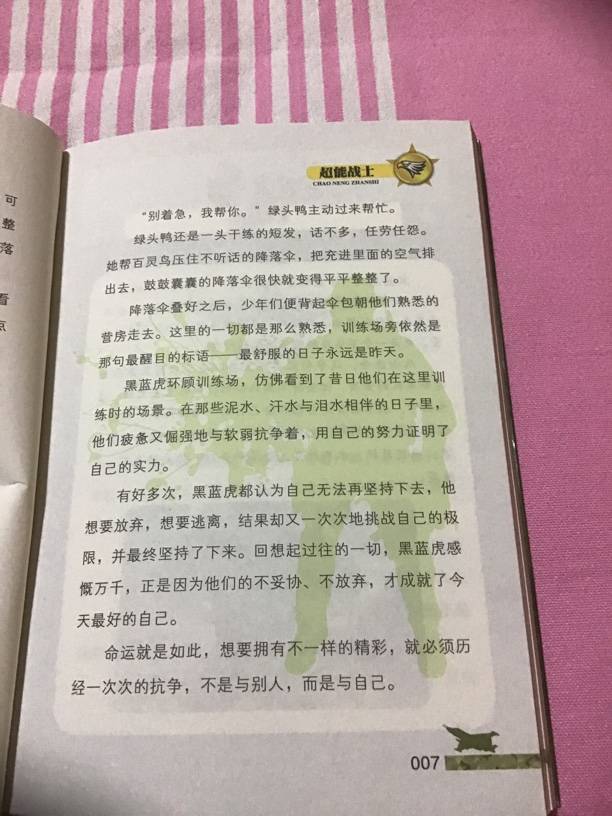 可
整
落
看
点
超能战士
CHAO NENG ZHANSHI
“别着急，我帮你。”绿头鸭主动过来帮忙。
绿头鸭还是一头干练的短发，话不多，任劳任怨。
她帮百灵鸟压住不听话的降落伞，把充进里面的空气排
出去，鼓鼓囊囊的降落伞很快就变得平平整整了。
降落伞叠好之后，少年们便背起伞包朝他们熟悉的
营房走去。这里的一切都是那么熟悉，训练场旁依然是
那句最醒目的标语——最舒服的日子永远是昨天。
黑蓝虎环顾训练场，仿佛看到了昔日他们在这里训
练时的场景。在那些泥水、汗水与泪水相伴的日子里，
他们疲惫又倔强地与软弱抗争着，用自己的努力证明了
自己的实力。
有好多次，黑蓝虎都认为自己无法再坚持下去，他
想要放弃，想要逃离，结果却又一次次地挑战自己的极
限，并最终坚持了下来。回想起过往的一切，黑蓝虎感
慨万千，正是因为他们的不妥协、不放弃，才成就了今
天最好的自己。
命运就是如此，想要拥有不一样的精彩，就必须历
经一次次的抗争，不是与别人，而是与自己。
007